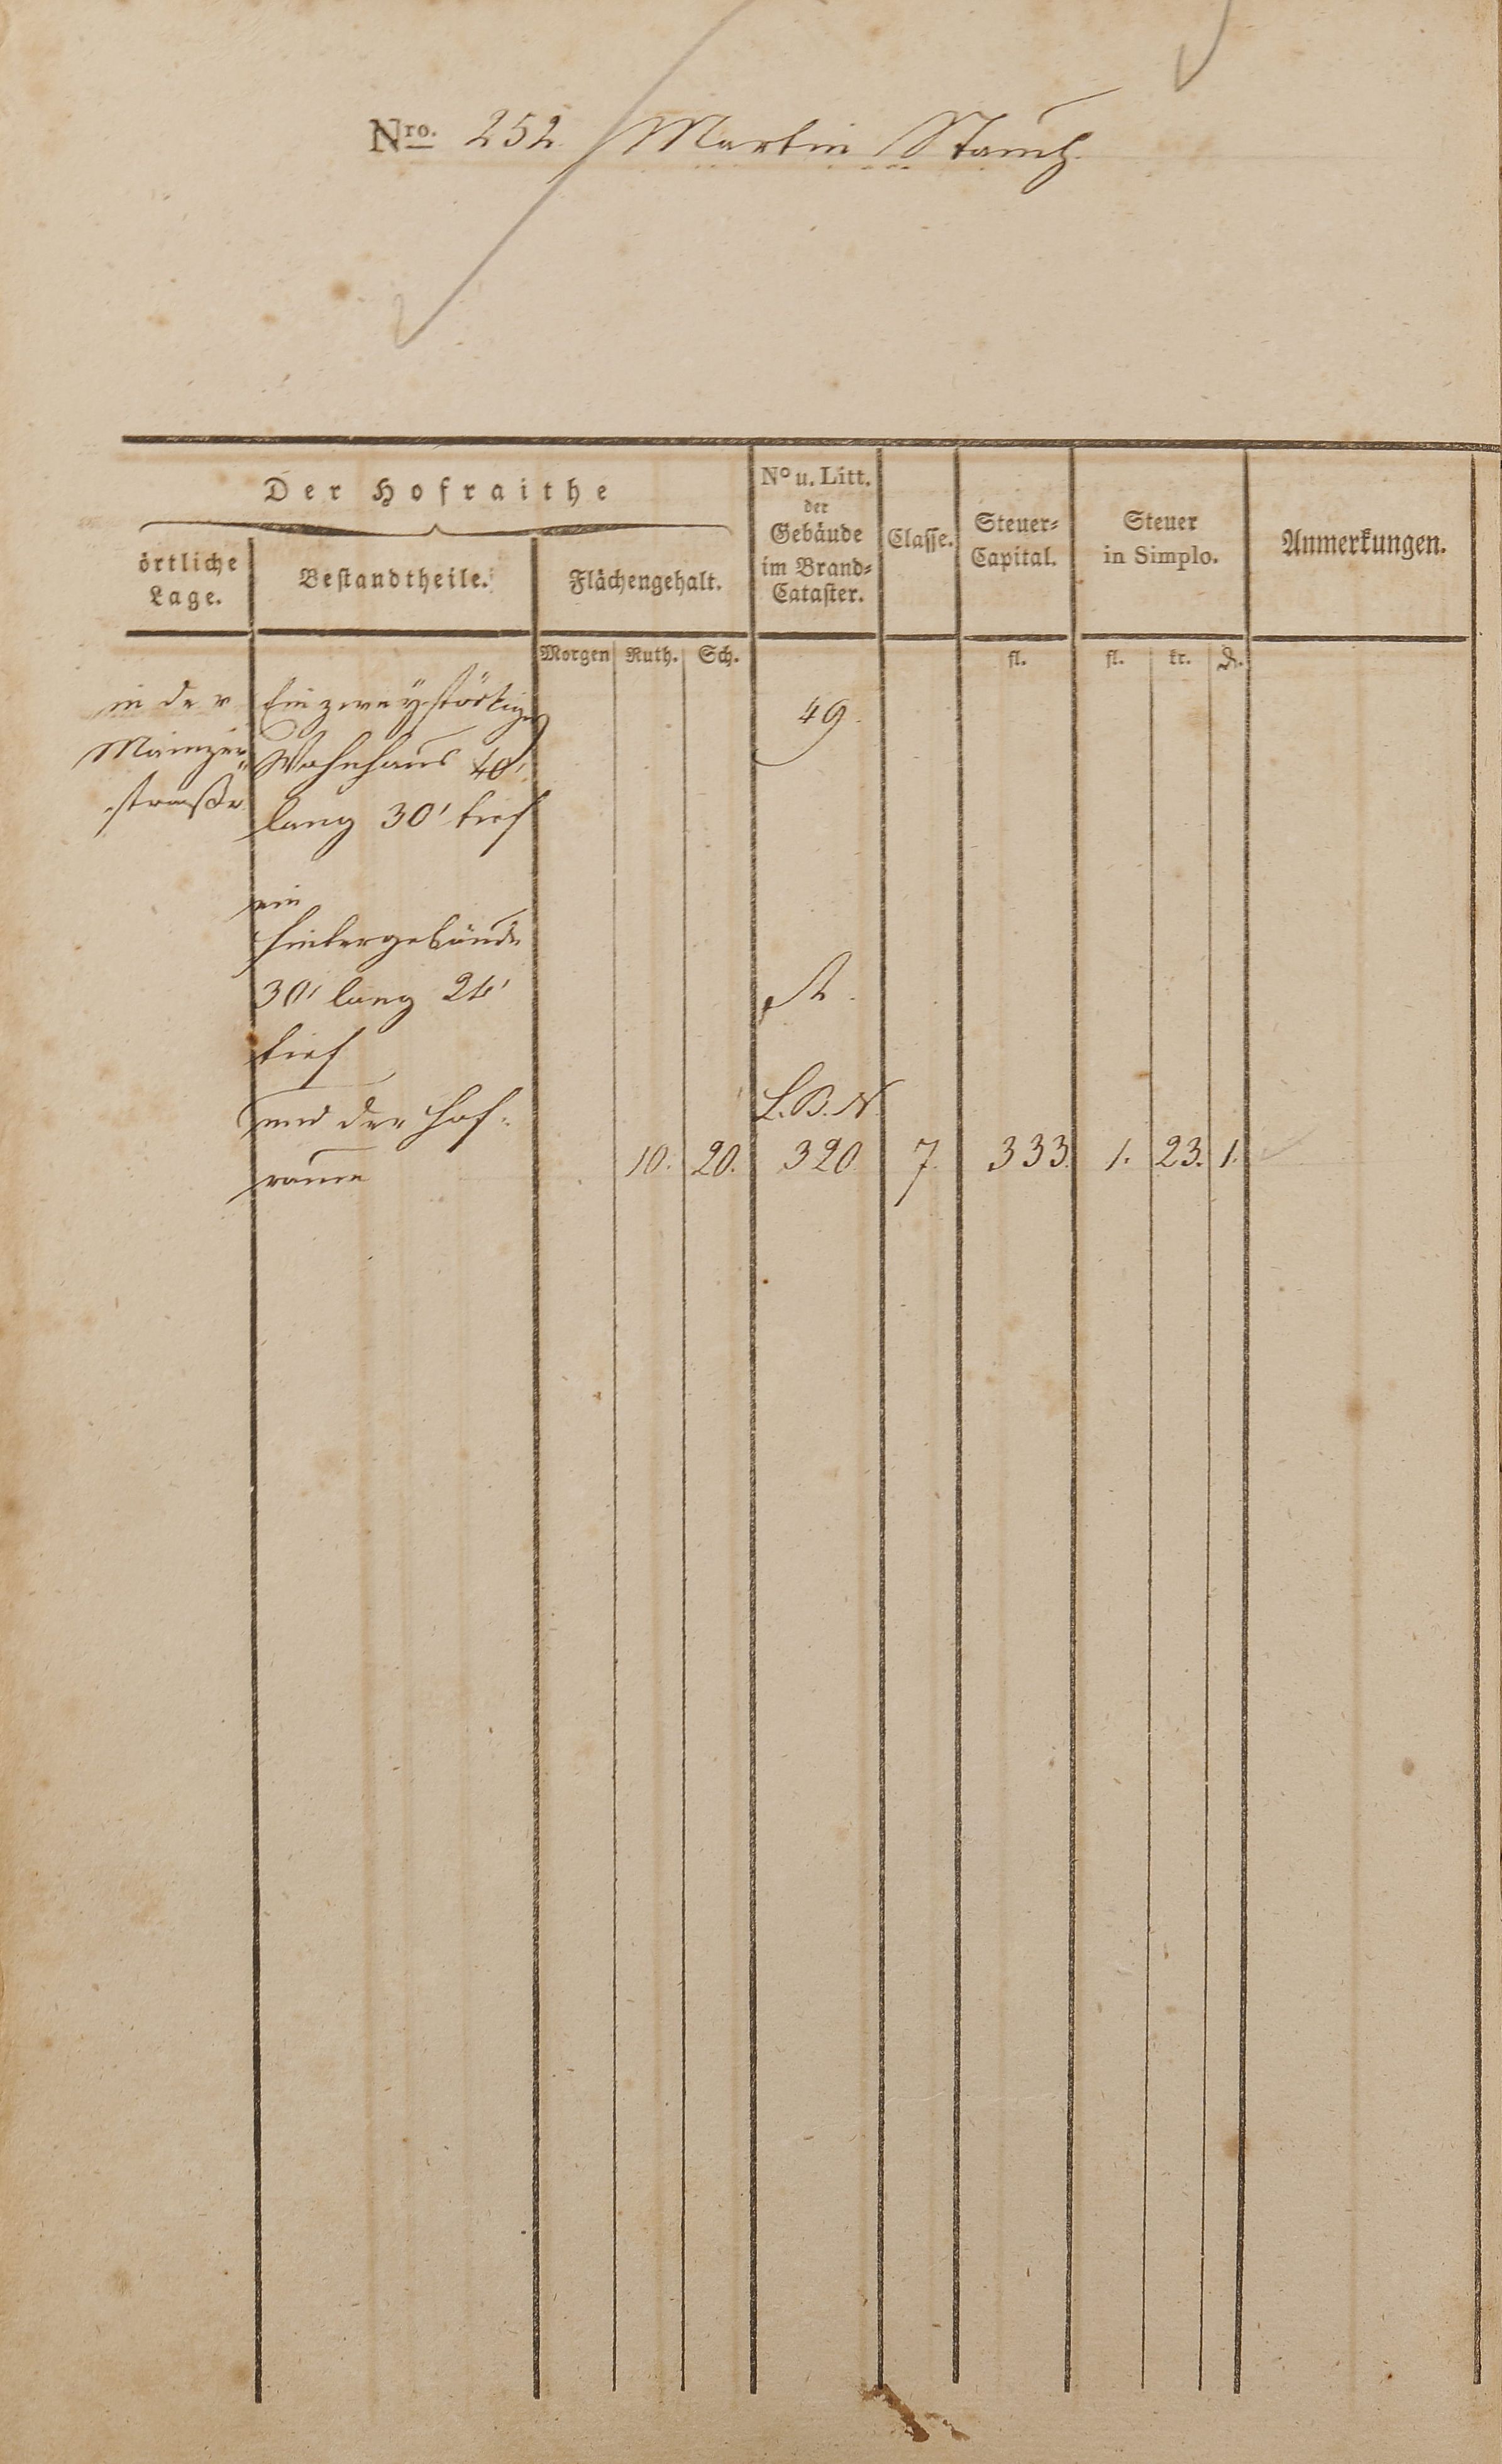 Nro. 252. Martin Stauch.
Der Hofraithe
örtliche
Lage.
Bestandtheile.
Flächengehalt.
No u. Litt.
der
Gebäude
im Brand-
Cataster.
Classe.
Steuer-
Capital.
Steuer
in Simplo.
Anmerkungen.
Morgen Ruth. Sch. fl. fl. kr. d.
in der Ein zweystökiges 49.
Mainzer Wohnhaus 40'
straße lang 30' tief
ein
Hintergebäude
30' lang 24' A.
tief
und der Hof- L.B.N.
raum 10. 20. 320. 7. 333. 1. 23. 1.